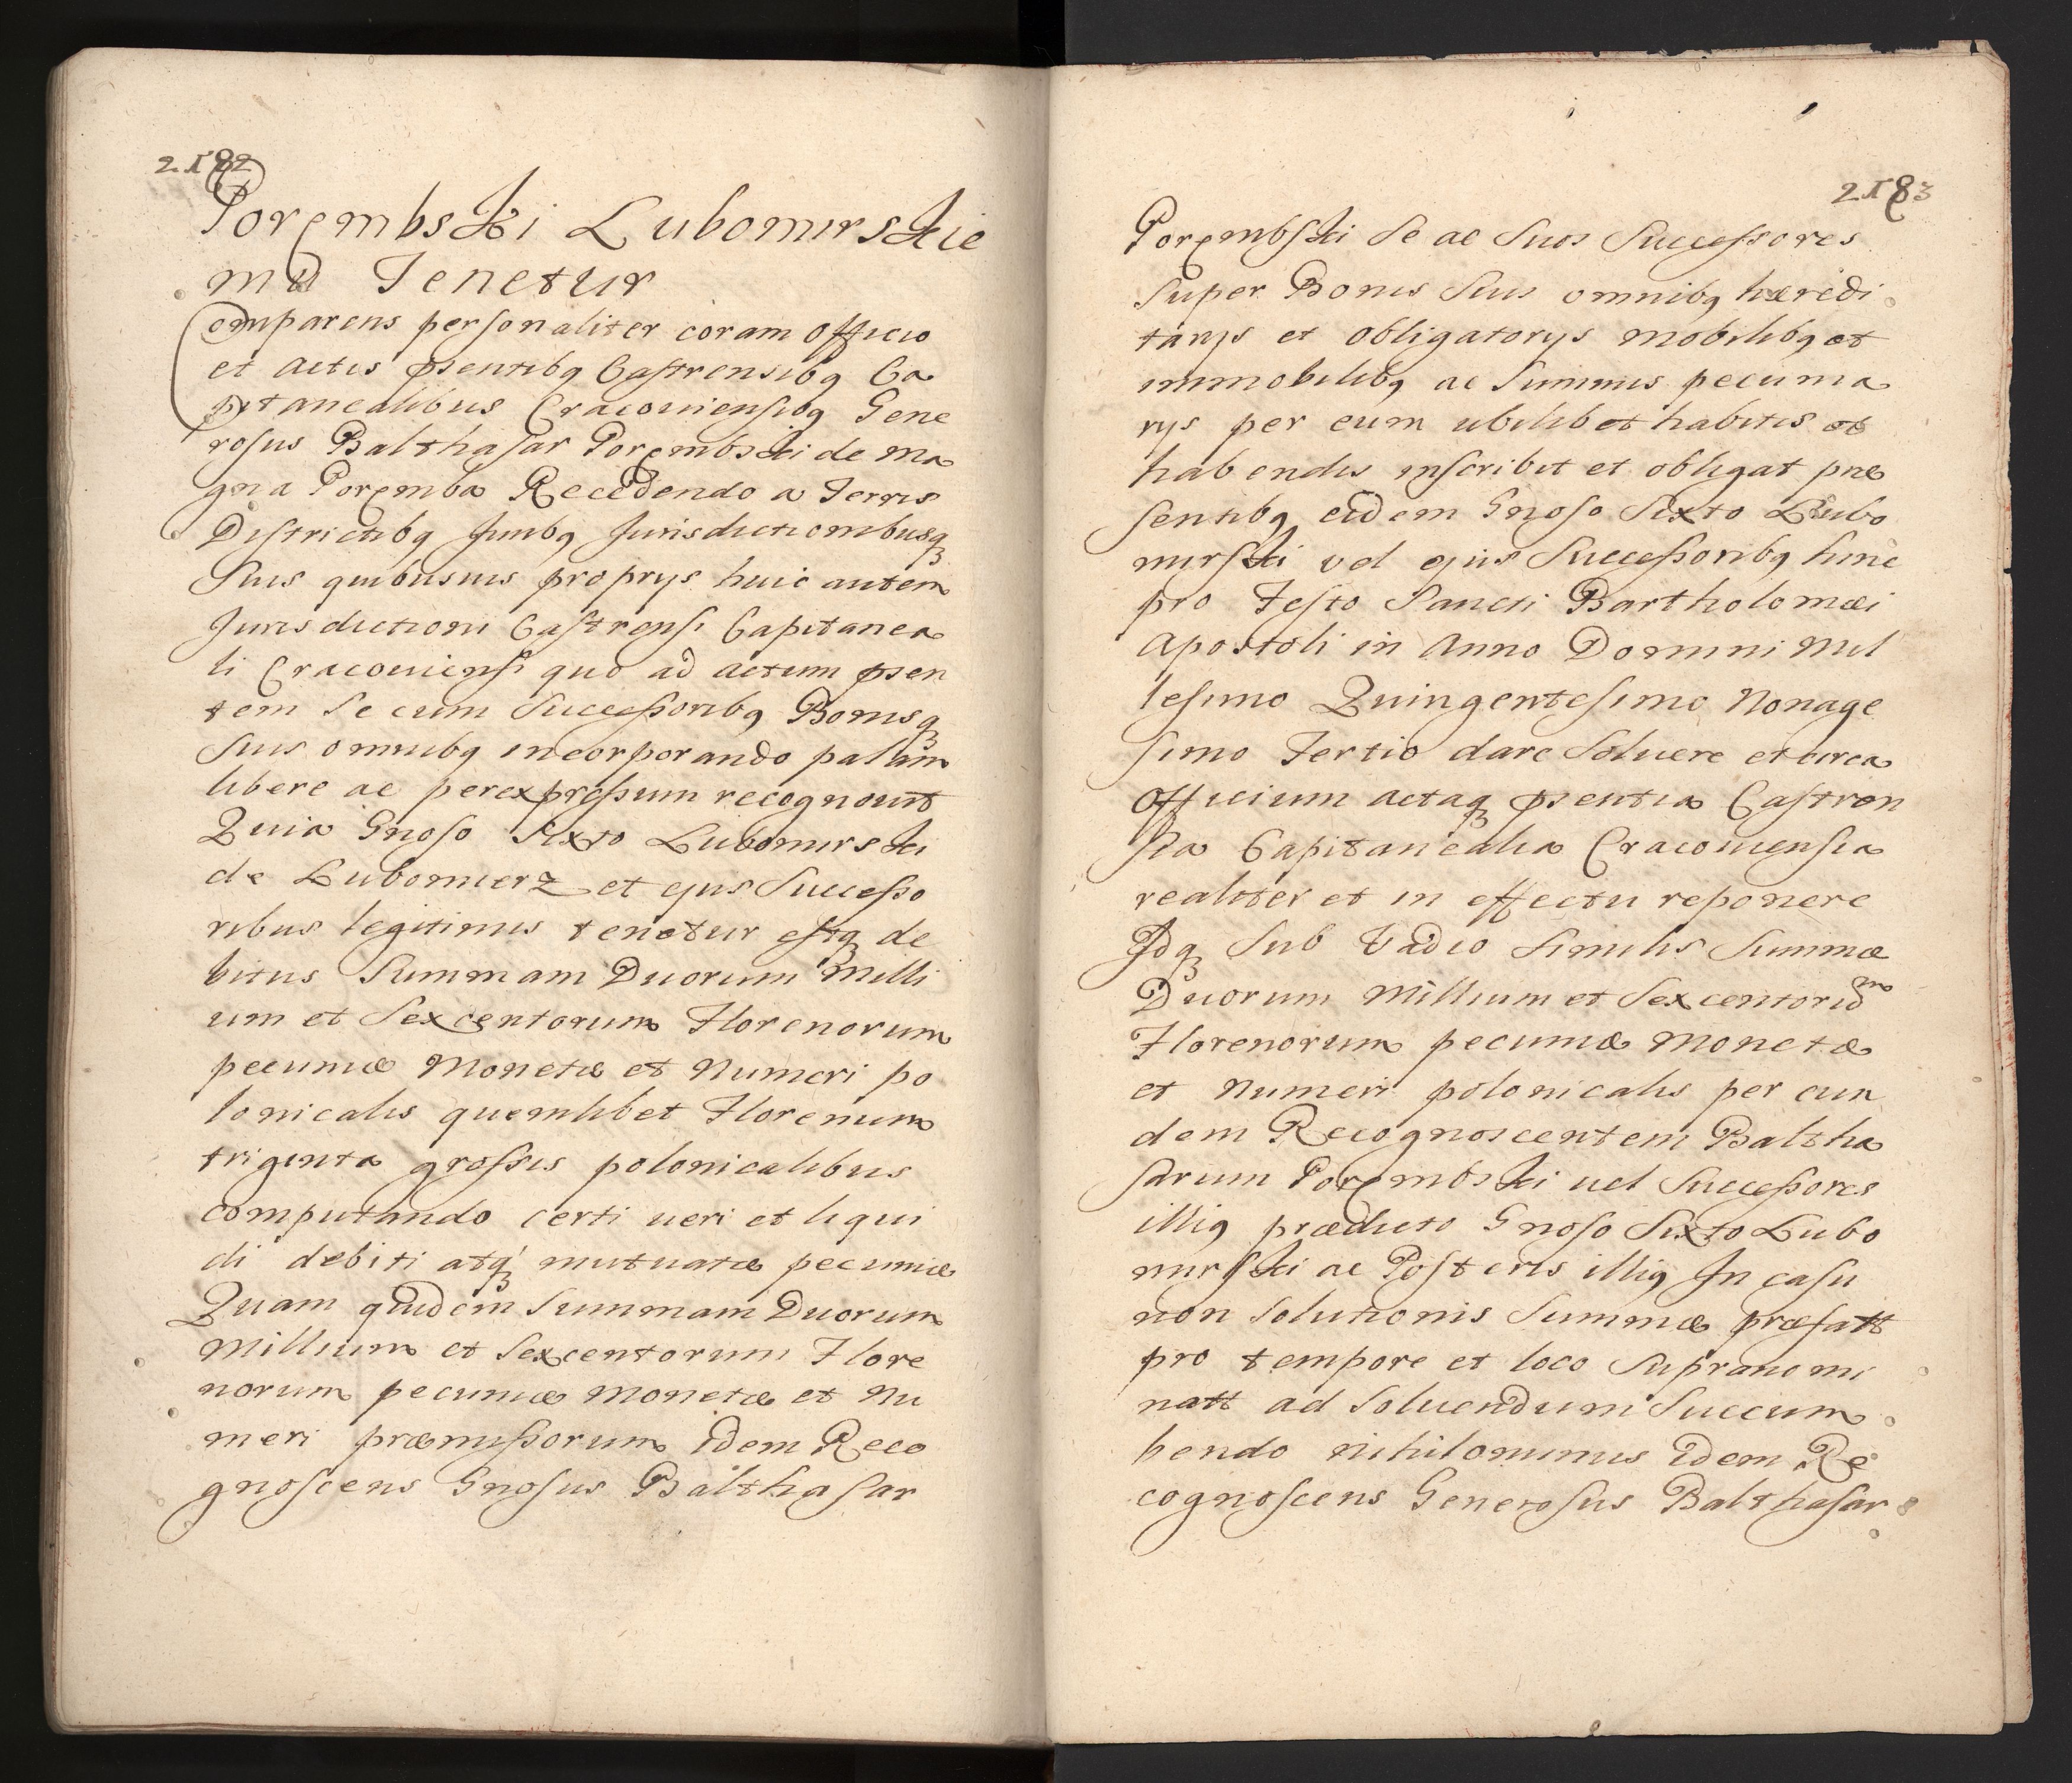 2182
Porembski Lubomirskie
mu Tenetur
Comparens personaliter coram officio
et actis pñtibq Castrensibq Ca
pitanealibus Cracouiensibq Gene
rosus Balthasar Porembski de Ma
gna Poremba Recedendo a Terris
Districtibq Juribq Jurisdictionibusq
Suis quibusuis proprys huic autem
Jurisdictioni Castrensi Capitanea
li Cracouiensi quo ad actum psen
tem Se cum Successoribq Bonisq
Suis omnibq incorporando palam
libere ac per expressum recognouit
Quia Gnoso Sixto Lubomirski
de Lubomierz et ejus Successo
ribus legitimis tenetur estq de
bitus Summam Duorum Milli
um et Sexcentorum Florenorum
pecuniæ Monetæ et Numeri po
lonicalis quemlibet Florenum
triginta grossis polonicalibus
computando certi ueri et liqui
di debiti atq mutuatæ pecuniæ
Quam quidem Summam Duorum
Millium et Sexcentorum Flore
norum pecuniæ Monetæ et Nu
meri præmissorum idem Reco
gnoscens Gnosus Balthasar
2183
Porembski Se ac Suos Successores
Super Bonis Suis omnibq hæredi
tarys et obligatorys mobilibq et
immobilibq ac Summis pecunia
rys per eum ubilibet habitis et
habendis inscribit et obligat præ
sentibq eidem Gnoso Sixto Lubo
mirski vel ejus Successoribq hinc
pro Festo Sancti Bartholomæi
Apostoli in Anno Domini Mil
lesimo Quingentesimo Nonage
simo Tertio dare Soluere et circa
Officium actaq psentia Castren
sia Capitanealia Cracouiensia
realiter et in effectu reponere
Idq Sub Vadio Similis Summæ
Duorum Millium et Sexcentorum
Florenorum pecuniæ Monetæ
et Numeri polonicalis per eun
dem Recognoscentem Baltha
sarum Porembski uel Successores
illiq prædicto Gnoso Sixto Lubo
mirski ac Posteris illiq In casu
non Solutionis Summæ præfatt
pro tempore et loco Supranomi
natt ad Soluendum Succum
bendo nihilominus idem Re
cognoscens Generosus Balthasar